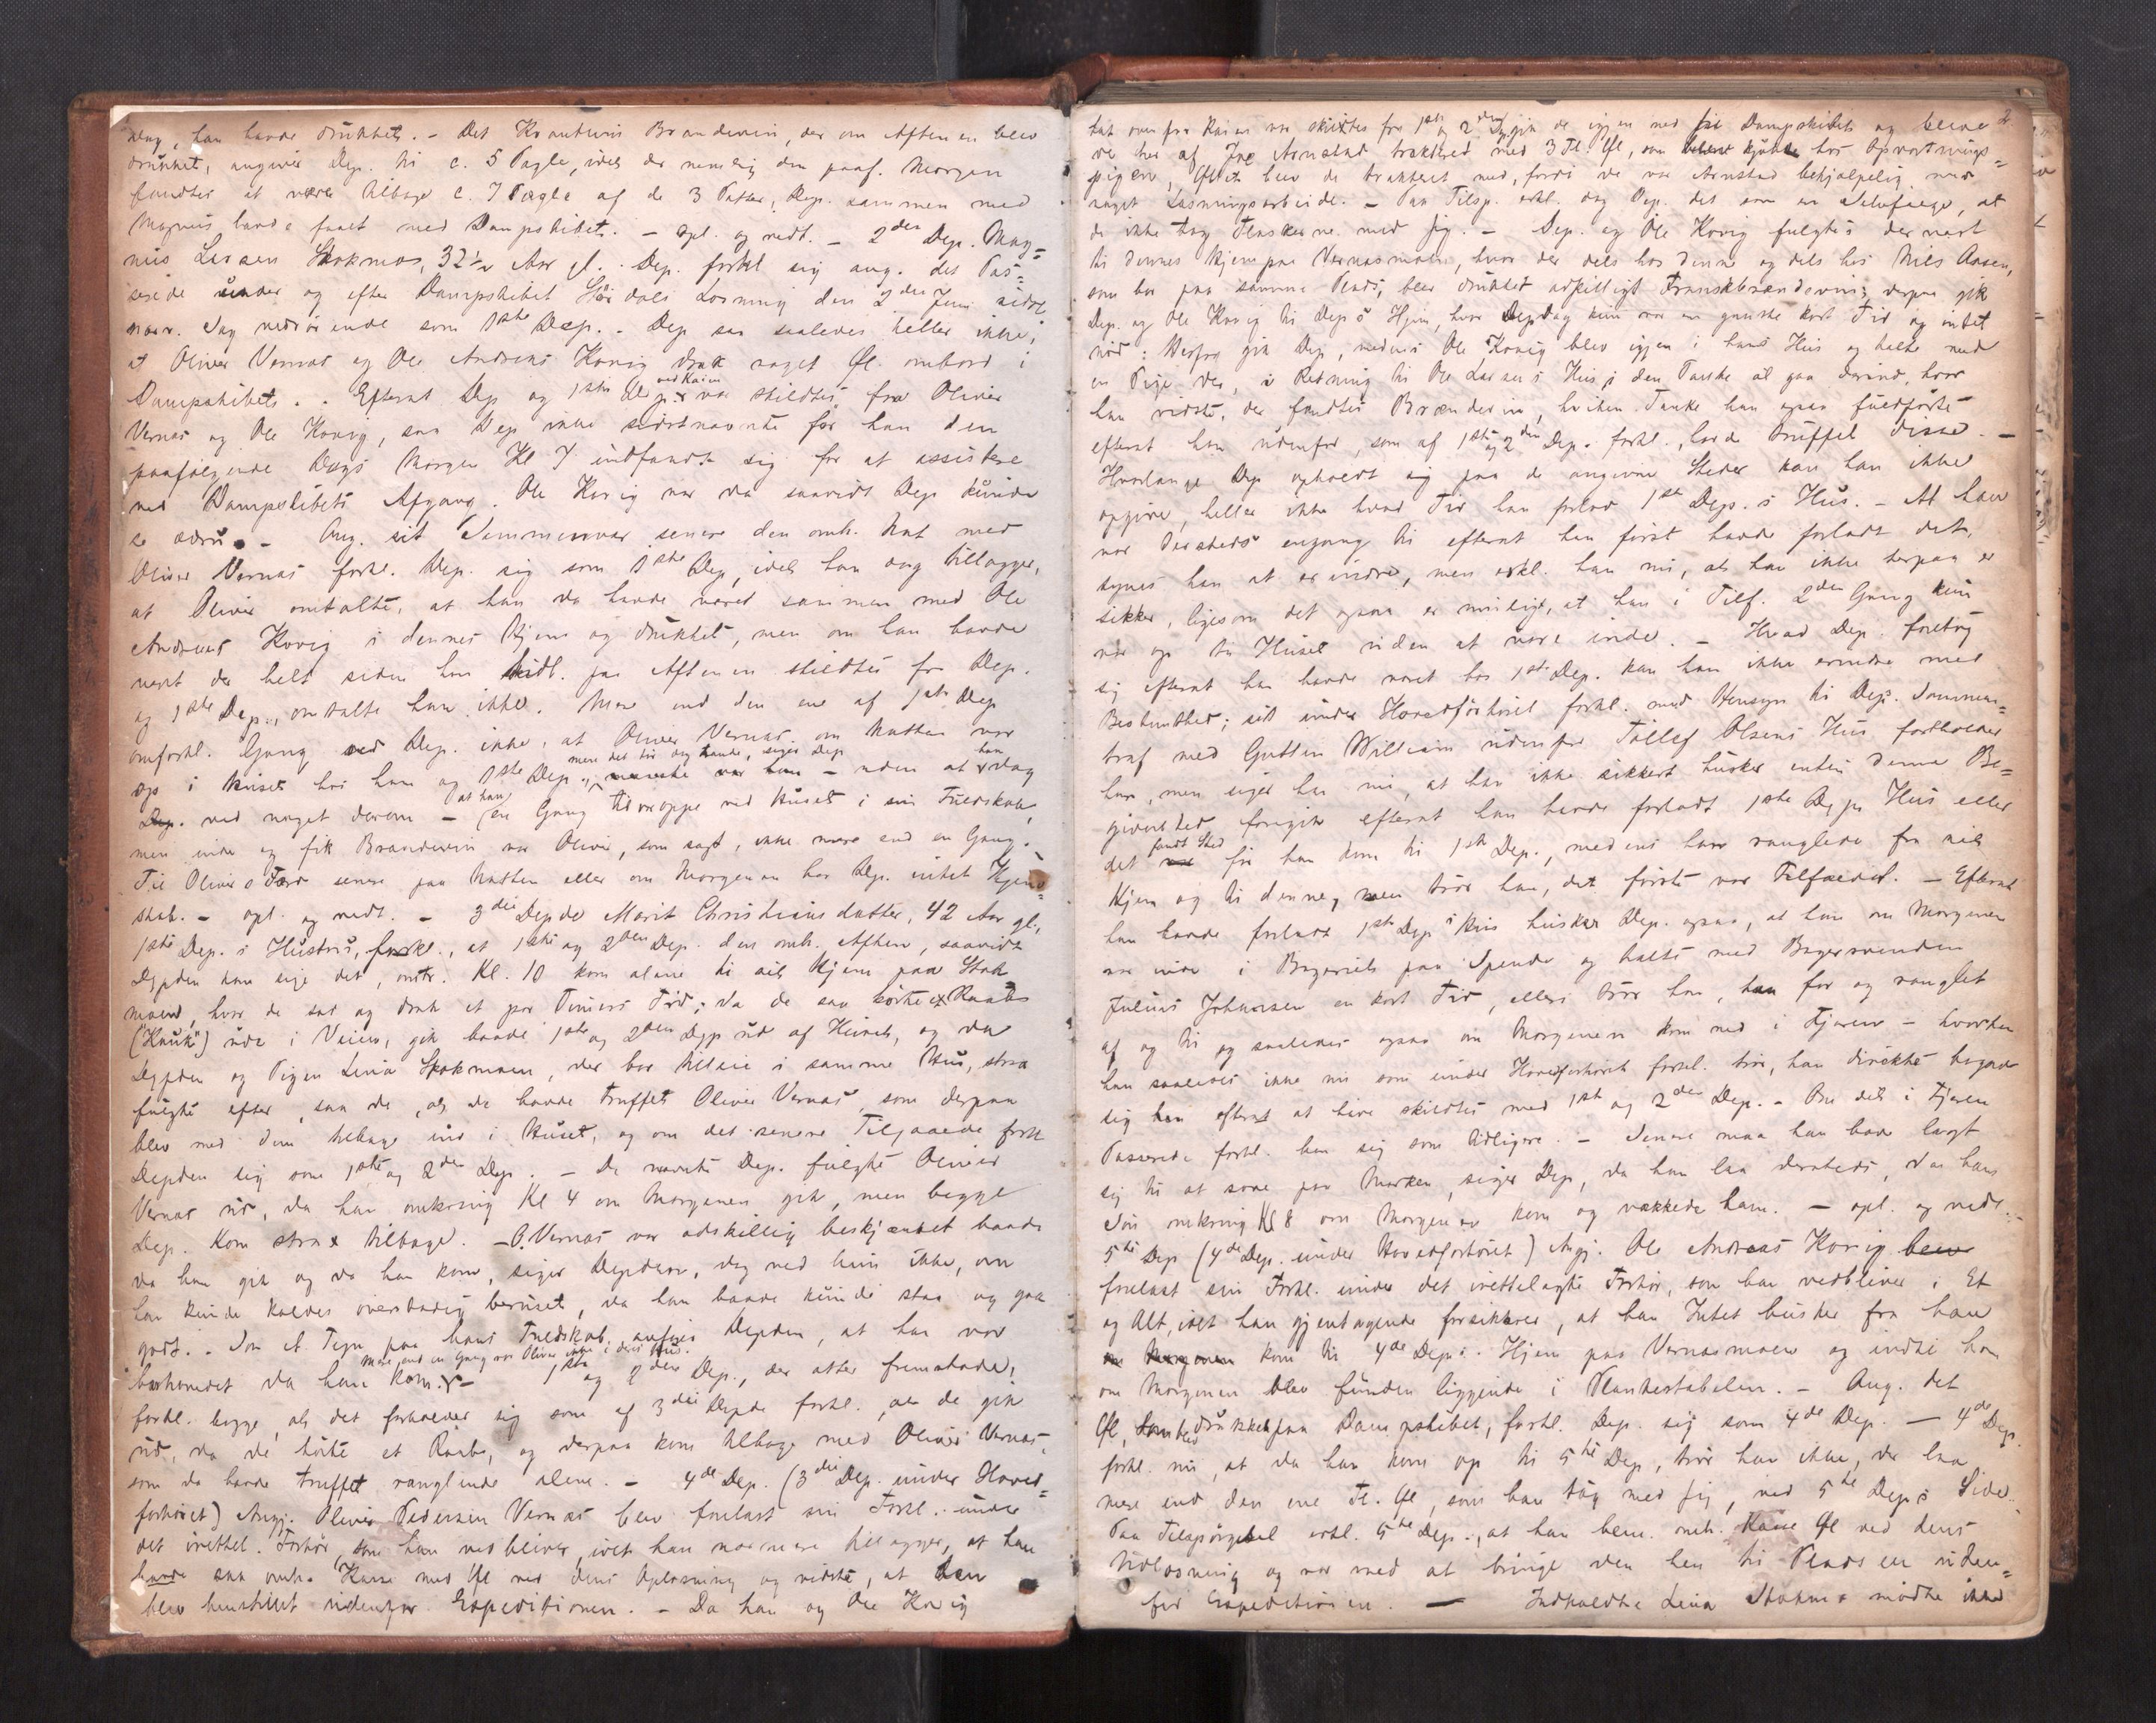 drug, han havde drukket. - Det Kvantum Brændeviin, der om Aftenen blev
drukket, angiver Dep. til c. 5 Pægle, idet der nemlig den paaf. Morgen
fandtes at være tilbage c. 7 Pægle af de 3 Potter, Dep. sammen med
Magnus havde faaet med Dampskibet. - opl. og vedt. - 2den Dep. Mag=
nus Larsen Stokmo, 32 1/2 Aar gl. - Dep. forkl sig ang. det Pas=
serede under og efter Dampskibet Hårdals Losning den 2den Juni sidst
nær. Dag vedrørende som 1ste Dep. - Dep saa saaledes heller ikke,
at Oliver Vernæs og Ole Andreas Kovig drak noget Øl ombord i
Dampskibet. - Efterat Dep og 1ste Dep. ved Kaien var skildtes fra Oliver
Vernæs og Ole Kovig, saa Dep ikke sidstnævnte før han den
paafølgende Dags Morgen Kl 7 indfandt sig for at assistere
ved Dampskibets Afgang. Ole Kovig var da saavidt Dep kunde
se ædru. - Ang. sit Sammenvær senere den omh. Nat med
Oliver Vernæs forkl. Dep. sig som 1ste Dep, idet han dog tillægger,
at Oliver omtalte, at han da havde været sammen med Ole
Andreas Kovig i dennes Hjem og drukket, men om han havde
været der helt siden han tidl. paa Aftenen skildtes fra Dep.
og 1ste Dep., omtalte han ikke. Mere end den ene af 1ste Dep
omforkl. Gang ved Dep. ikke, at Oliver Vernæs om Natten var
op i Huset hos ham og 1ste Dep., men det tør dog hænde, siger Dep - uden at han dog
ved noget derom - at han en Gang til var oppe ved Huset i sin Fuldskab,
men inde og fik Brændeviin var Oliver, som sagt, ikke mere end en Gang. -
Til Olivers Færd senere paa Natten eller om Morgenen har Dep. intet Kjend=
skab. - opl. og vedt. - 3die Depde Marit Christiansdatter, 42 Aar gl.,
1ste Dep.s Hustru, forkl., at 1ste og 2den Dep. den omh. Aften, saavidt
Depden kan sige det, omtr. Kl. 10 kom alene til sit Hjem paa Stok
moen, hvor de sat og drak et par Timers Tid; da de saa hørte et Raab
(Hauk) ude i Veien, gik baade 1ste og 2den Dep ud af Huset, og da
Depden og Pigen Lina Stokmoen, der bor tilleie i samme Hus, strax
fulgte efter, saa de, at de havde truffet Oliver Vernæs, som derpaa
blev med dem tilbage ind i Huset, og om det senere Tilgaaede forkl
Depden sig som 1ste og 2den Dep. - De nævnte Dep. fulgte Oliver
Vernæs ud, da han omkring Kl 4 om Morgenen gik, men begge
Dep. kom strax tilbage. - O. Vernæs var adskillig beskjænket baade
da han gik og da han kom, siger Depden, dog ved hun ikke, om
han kunde kaldes overstadig beruset, da han baade kunde staa og gaa
godt. - Som et Tegn paa hans Fuldskab anfører Depden, at han var
barhovedet da han kom. - Mere end en Gang var Oliver ikke i deres Hus. - 1ste og 2den Dep., der atter fremstode,
forkl. begge, at det forholder sig som af 3die Depde forkl., at de gik
ud, da de hørte et Raab, og derpaa kom tilbage med Oliver Vernæs,
som de havde truffet ranglende alene. - 4de Dep. (3die Dep. under Hoved=
forhøret) Angj. Oliver Pedersen Vernæs blev forelæst sin Forkl. under
det irettel. Forhør, som han vedbliver, idet han nærmere tillægger, at han
havde saa omh. Kasse med Øl ved dens Oplosning og vidste, at den
blev henstillet udenfor Expeditionen. - Da han og Ole Kovig
2.
tæt ovenfor Kaien var skildtes fra 1ste og 2den Dep. gik de igjen ned til Dampskibet og bleve
der her af Arnstad trakteret med 3 Fl. Øl, som kjøbtes hos Opvartnings=
pigen, Øllet blev de trakteret med, fordi de var Arnstad behjælpelig med
noget Losningsarbeide. - Paa Tilsp. erkl. dog Dep. det som en Selvfølge, at
de ikke tog Flaskerne med sig. - Dep. og Ole Kovig fulgtes dernæst
til dennes Hjem paa Vernæsmoen, hvor der dels hos denne og dels hos Nils Aasen,
som bor paa samme Plads, blev drukket adskilligt Franskbrændeviin; derpaa gik
Dep. og Ole Kovig til Dep's Hjem, hvor Dep dog kun var en ganske kort Tid og intet
nød: Derfra gik Dep, medens Ole Kovig blev igjen i hans Hus og talte med
en Pige der, i Retning til Ole Larsens Hus i den Tanke at gaa derind, hvor
han vidste, der fandtes Brændeviin, hvilken Tanke han ogsaa fuldførte
efterat han udenfor, som af 1ste og 2den Dep. forkl. havde truffet disse. -
Hvorlænge Dep opholdt sig paa de angivne Steder kan han ikke
opgive, heller ikke hvad Tid han forlod 1ste Dep.s Hus. - At han
var dersteds engang til efterat han først havde forladt det,
synes han at erindre, men erkl. han nu, at han ikke herpaa er
sikker, ligesom det ogsaa er muligt, at han i Tilf. 2den Gang kun
var op til Huset uden at være inde. - Hvad Dep. foretog
sig efterat han havde været hos 1ste Dep. kan han ikke erindre med
Bestemthed; sit under Hovedforhøret forkl. med Hensyn til Dep's Sammen=
træf med Gutten William udenfor Tollef Olsens Hus fastholder
han, men siger han nu, at han ikke sikkert husker enten denne Be=
givenhed foregik efterat han havde forladt 1ste Deps Hus eller
det fandt Sted før han kom til 1ste Dep., medens han ranglede fra sit
Hjem og til denne, men tror han, det første var Tilfældet. - Efterat
han havde forladt 1ste Dep's Hus husker Dep. ogsaa, at han om Morgenen
var inde i Bageriet paa Spende og talte med Bagersvenden
Julius Johansen en kort Tid, ellers tror han, han for og ranglet
af og til og saaledes ogsaa om Morgenen kom ned i Fjæren - hvorhen
han saaledes ikke nu som under Hovedforhøret forkl. tror, han direkte begav
sig hen efterat at have skildtes med 1ste og 2den Dep. - Om det i Fjæren
Passerede forkl. han sig som tidligere. - Senere maa han have lagt
sig til at sove paa Marken, siger Dep, da han laa dersteds, da hans
Søn omkring Kl 8 om Morgenen kom og vækkede ham. - opl. og vedt. -
5te Dep (4de Dep. under Hovedforhøret) Angj. Ole Andreas Kovig
forelæst sin Forkl. under det irettelagte Forhør, som han vedbliver i Et
og Alt, idet han gjentagende forsikkrer, at han Intet husker fra han
kom til 4de Dep's Hjem paa Vernæsmoen og indtil han
om Morgenen blev funden liggende i Plankestabelen. - Ang. det
Øl, som blev drukket paa Dampskibet, forkl. Dep. sig som 4de Dep. - 4de Dep.
forkl. nu, at da han kom op til 5te Dep, tror han ikke, der laa
mere end den ene Fl. Øl, som han tog med sig, ved 5te Dep's Side. -
Paa Tilspørgsel erkl. 5te Dep., at han bem. omh. Kasse Øl ved dens
Udlosning og var med at bringe den hen til Pladsen uden=
for Expeditionen. - Indkaldte Lina Stokmo mødte ikke